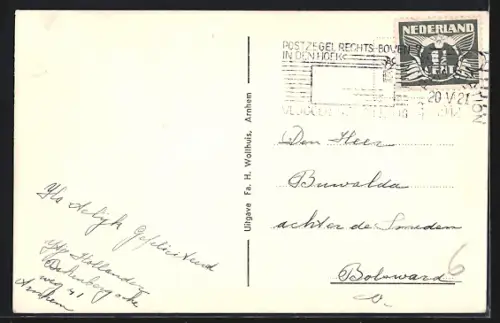 NEDERLAND
1½
CENT
POSTZEGEL RECHTS-BOVEN
IN DEN HOEK
ARNHEM
20 V 21
Uitgave Fa. H. Wolthuis, Arnhem
Den Heer
Buwalda
achter de Smeden
Bolsward
6
Gefeliciteerd
Hollander
weg 41
Arnhem